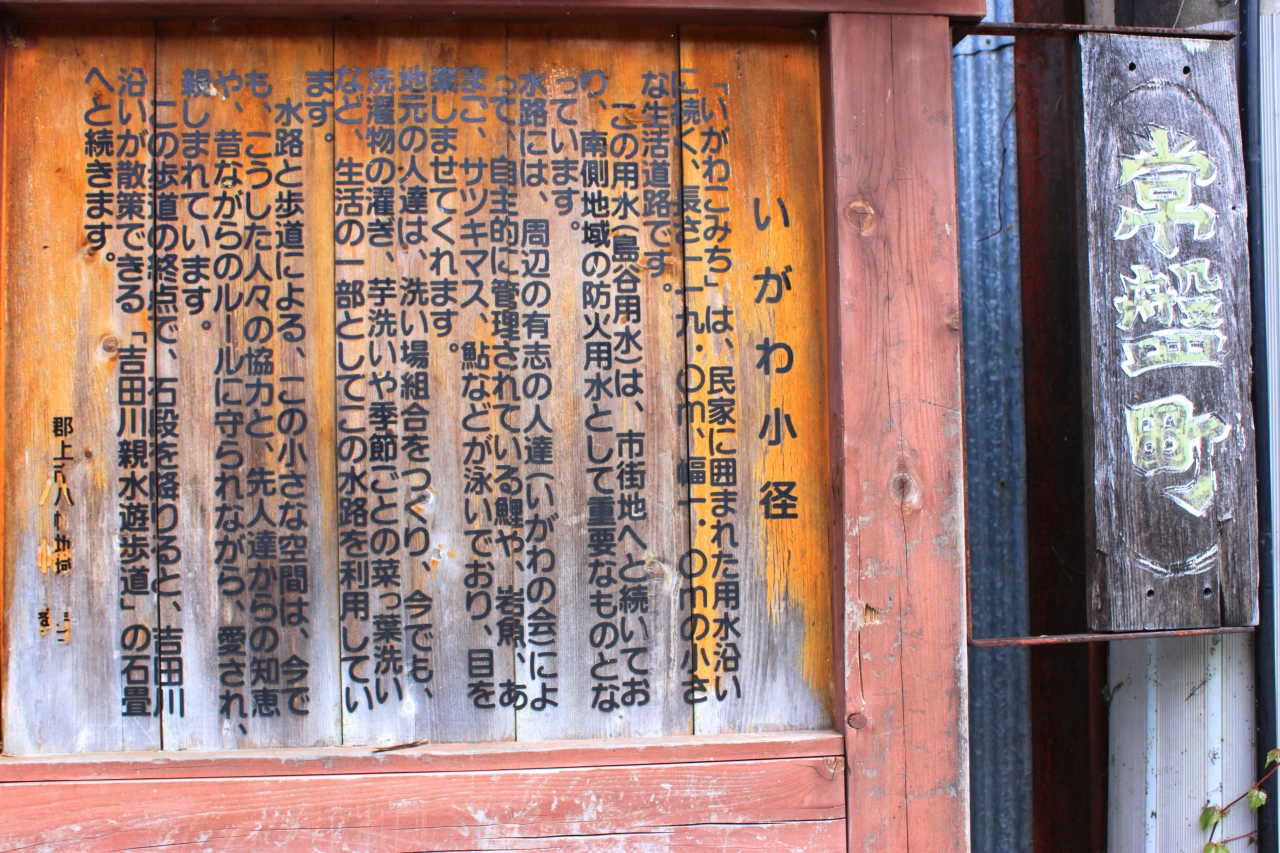 常盤町
いがわ小径
「いがわこみち」は、民家に囲まれた用水沿い
に続く、長さ一一九.〇m、幅一.〇mの小さ
な生活道路です。
この用水(島谷用水)は、市街地へと続いてお
り、南側地域の防火用水として重要なものとな
っています。
水路には、周辺の有志の人達(いがわの会)によ
って、自主的に管理されている鯉や、岩魚、あ
まご、サツキマス、鮎などが泳いでおり、目を
楽しませてくれます。
地元の人達は、洗い場組合をつくり、今でも、
洗濯物の濯ぎ、芋洗いや季節ごとの菜っ葉洗い
など、生活の一部としてこの水路を利用してい
ます。
水路と歩道による、この小さな空間は、今で
も、こうした人々の協力と、先人達からの知恵
や、昔ながらのルールに守られながら、愛され、
親しまれています。
この歩道の終点で、石段を降りると、吉田川
沿いが散策できる「吉田川親水遊歩道」の石畳
へと続きます。
郡上市八幡地域